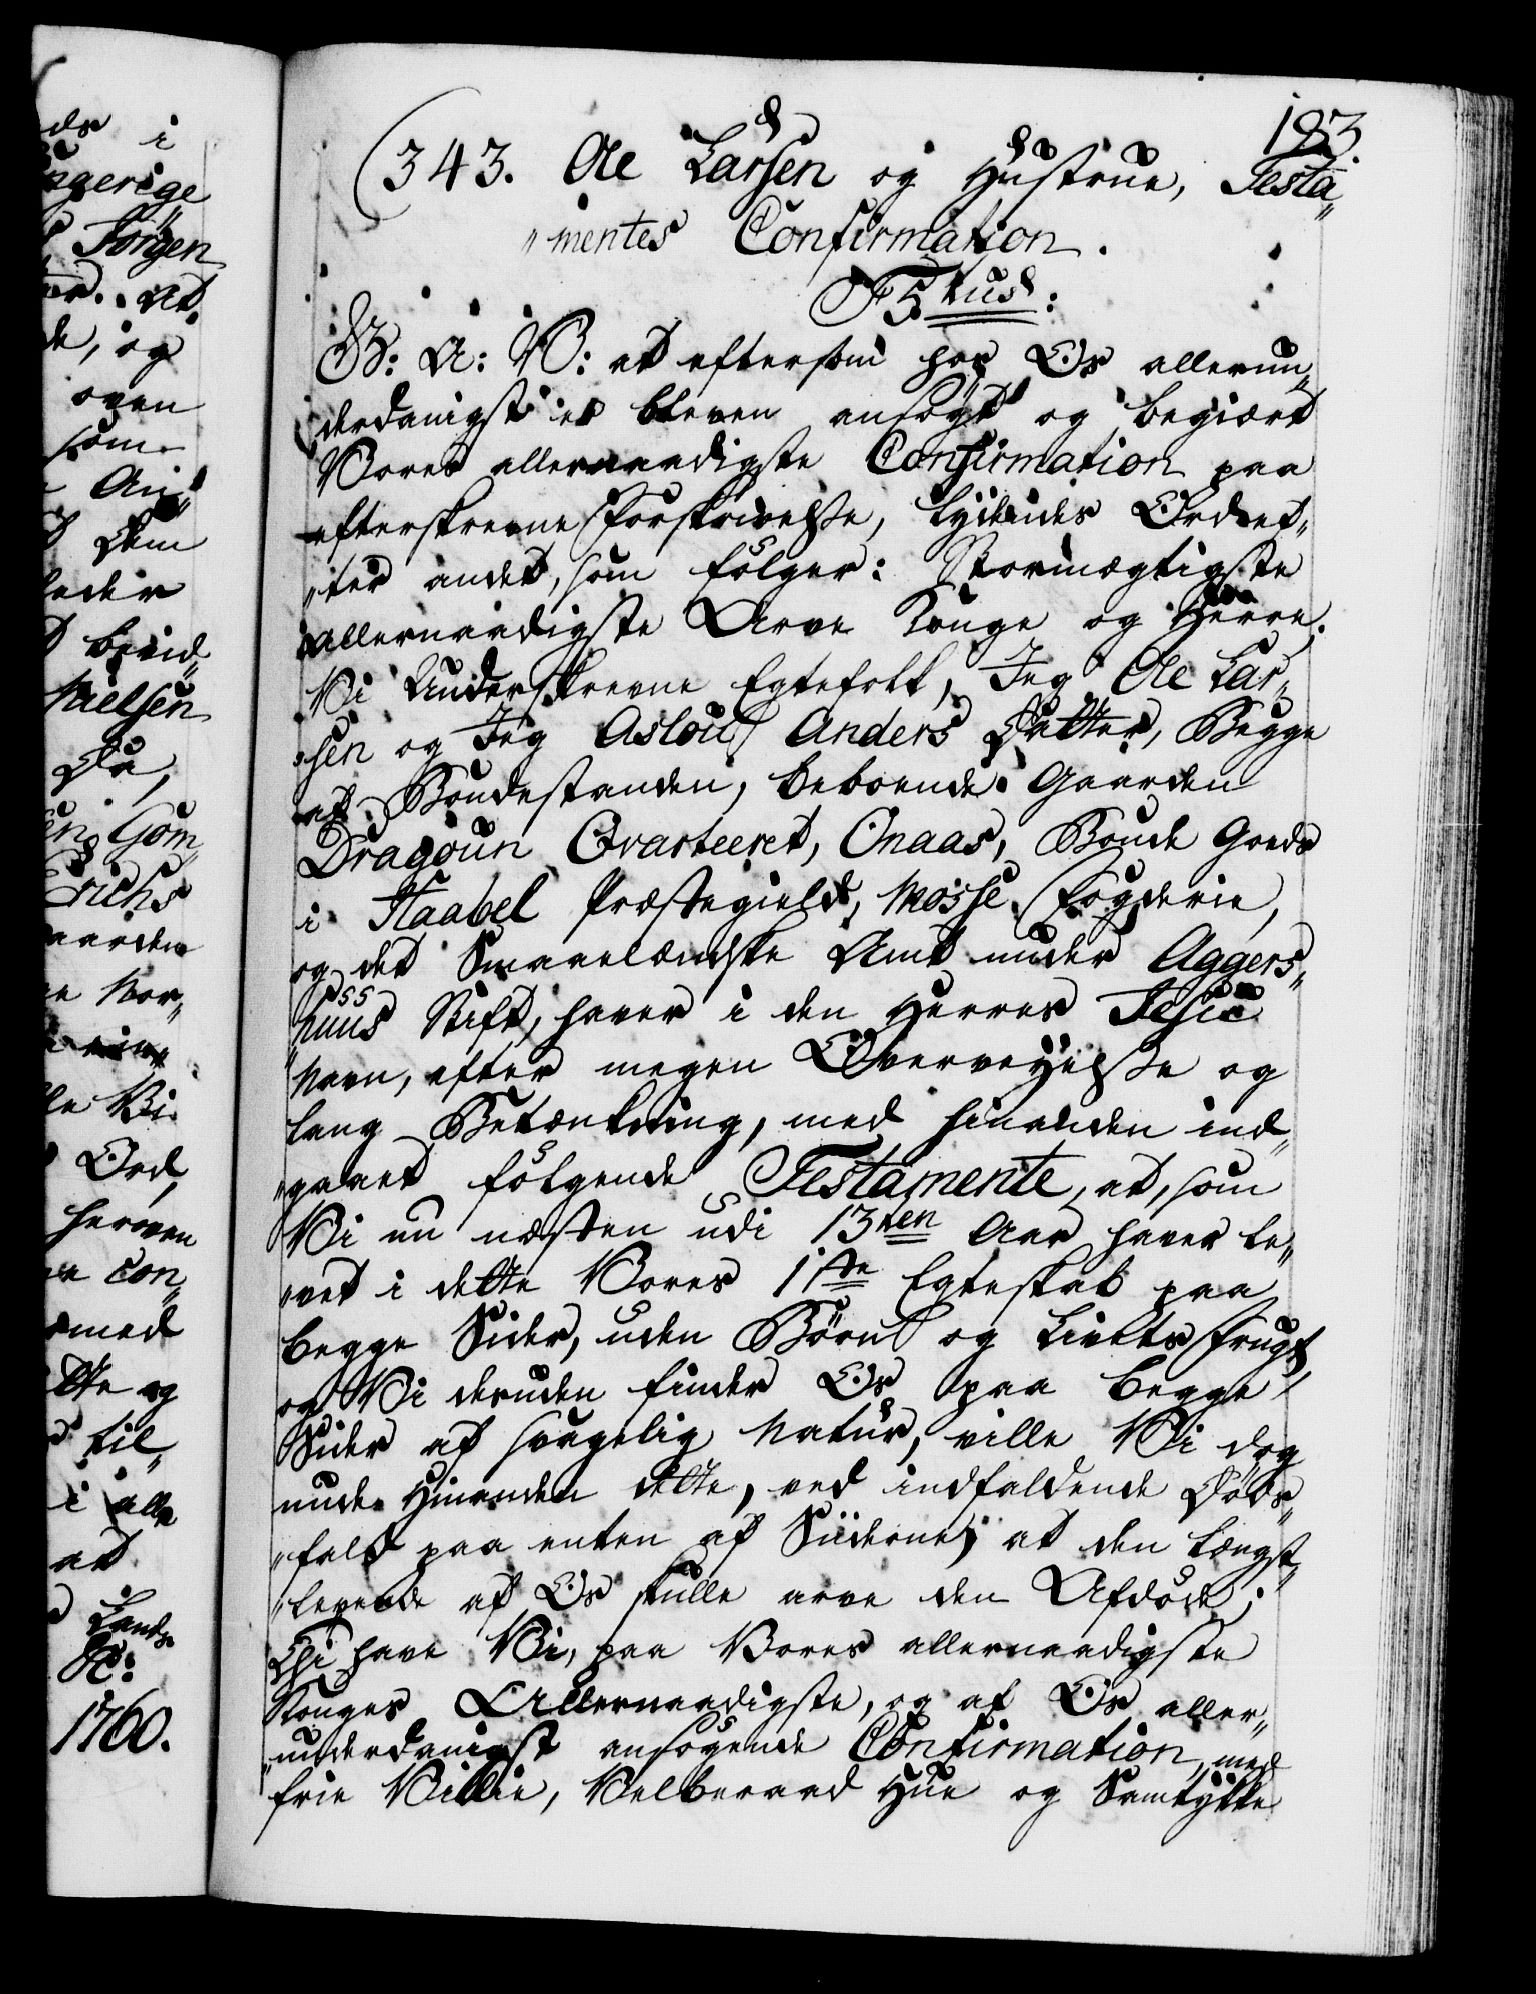 183
(343. Ole Larsen og Hustrue, Testa„
„mentes Confirmation.
F5tus:
G: A: V: at eftersom hos Os allerun„
derdanigst er bleven ansøgt og begiært
Vores allernaadigste Confirmation paa
efterskrevne Forskrivelsse, lydendes Ord ef„
„ter andet, som følger: Stormægtigste
allernaadigste Arve Konge og Herre.
Vi Underskrevne Egtefolk, Jeg Ole Lar„
„sen og Jeg Asloug Anders Datter, Begge
af Bondestanden, beboende Gaarden
Dragoun Qvarteeret, Onaas, Bonde Gods
i Haabel Præstegield, Mosse Fogderie,
og det Smaaelændske Amt under Aggers„
„huus Stift, haver i den Herres Jesu
Navn, efter megen Overveyelsse og
lang Betænkning, med hinanden ind„
„gaaet følgende Testamente, at, som
Vi nu næsten udi 13ten Aar haver le„
„vet i dette Vores 1ste Egteskab paa
begge Sider, uden Børn og Livets Frugt,
og Vi desuden finder Os paa begge
Sider af svagelig Natur, ville Vi dog
unde Hinanden dette, ved indfaldende Døds„
„fald paa enten af Siiderne, at den længst„
„levende af Os skulle arve den Afdøde;
Thi have Vi, paa Vores allernaadigste
Konges Allernaadigste, og af Os aller„
„underdanigst ansøgende Confirmation, med
frie Villie, Velberaad Hue og Samtykke